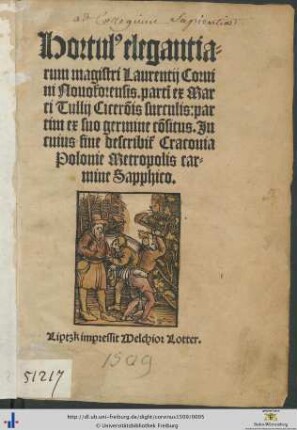 ad Collegium Sapientiae
Hortulꝰ elegantia-
rum magistri Laurentij Corui
ni Nouoforensis. partī ex Mar
ci Tullij Cicerōis surculis: par
tim ex suo germine cōsitus. In
cuius fine describit̃ Cracouia
Polonie Metropolis car-
mine Sapphico.
Liptzk impressit Melchior Lotter.
1509
51217
http://dl.ub.uni-freiburg.de/diglit/corvinus1509/0005
© Universitätsbibliothek Freiburg